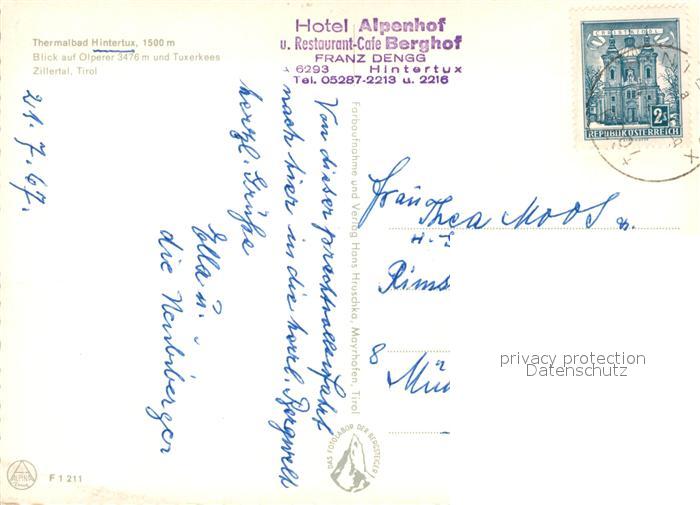 Thermalbad Hintertux, 1500 m
Blick auf Olperer 3476 m und Tuxerkees
Zillertal, Tirol
Hotel Alpenhof
u. Restaurant-Cafe Berghof
FRANZ DENGG
6293 Hintertux
Tel. 05287-2213 u. 2216
CHRISTKINDL
2S
REPUBLIK ÖSTERREICH
21.7.67.
Von dieser prachtvollen Fahrt
nach hier in die herrl. Bergwelt
herzl. Grüße
Ella u.
die Neubiberger
Farbaufnahme und Verlag Hans Hruschka, Mayrhofen, Tirol
Frau
Thea Moos
Rims
8
Mü
privacy protection
Datenschutz
DAS FOTOLABOR DER BERGSTEIGER
ALPINA
F 1211